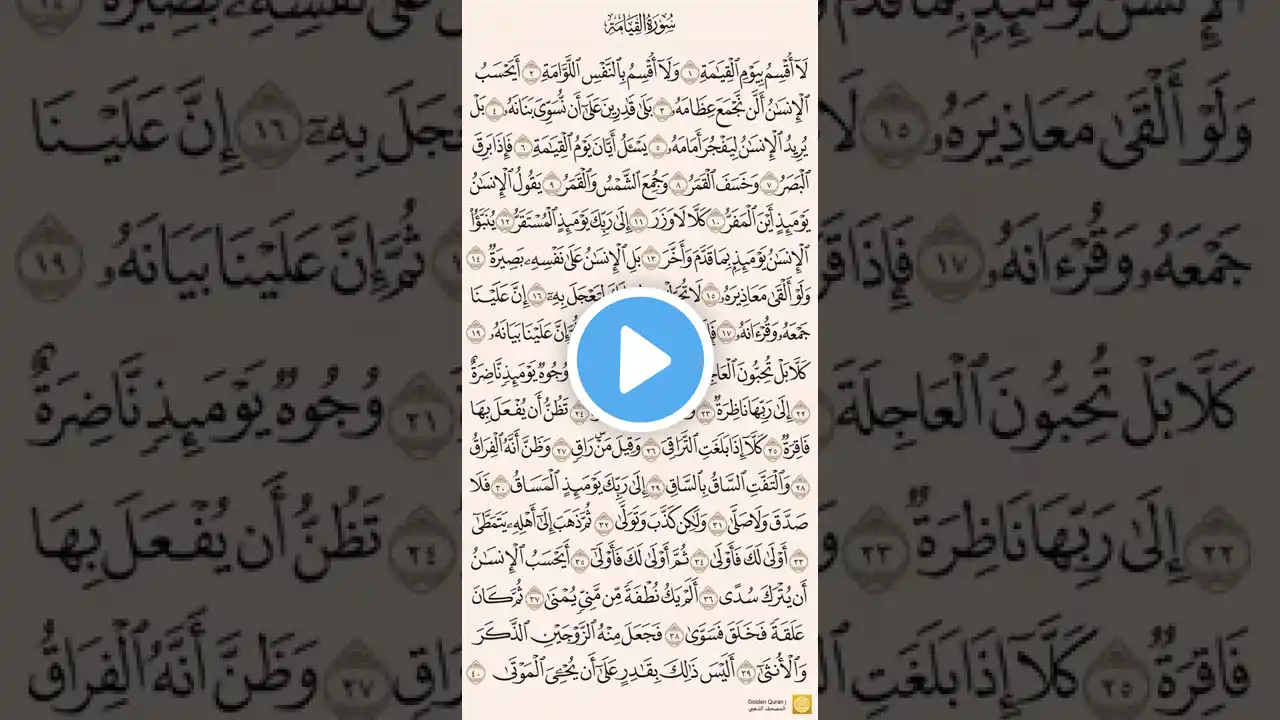 سُورَةُ القِيَامَةِ
لَآ أُقْسِمُ بِيَوْمِ ٱلْقِيَٰمَةِ ١ وَلَآ أُقْسِمُ بِٱلنَّفْسِ ٱللَّوَّامَةِ ٢ أَيَحْسَبُ
ٱلْإِنسَٰنُ أَلَّن نَّجْمَعَ عِظَامَهُۥ ٣ بَلَىٰ قَٰدِرِينَ عَلَىٰٓ أَن نُّسَوِّىَ بَنَانَهُۥ ٤ بَلْ
يُرِيدُ ٱلْإِنسَٰنُ لِيَفْجُرَ أَمَامَهُۥ ٥ يَسْـَٔلُ أَيَّانَ يَوْمُ ٱلْقِيَٰمَةِ ٦ فَإِذَا بَرِقَ
ٱلْبَصَرُ ٧ وَخَسَفَ ٱلْقَمَرُ ٨ وَجُمِعَ ٱلشَّمْسُ وَٱلْقَمَرُ ٩ يَقُولُ ٱلْإِنسَٰنُ
يَوْمَئِذٍ أَيْنَ ٱلْمَفَرُّ ١٠ كَلَّا لَا وَزَرَ ١١ إِلَىٰ رَبِّكَ يَوْمَئِذٍ ٱلْمُسْتَقَرُّ ١٢ يُنَبَّؤُا۟
ٱلْإِنسَٰنُ يَوْمَئِذٍۭ بِمَا قَدَّمَ وَأَخَّرَ ١٣ بَلِ ٱلْإِنسَٰنُ عَلَىٰ نَفْسِهِۦ بَصِيرَةٌ ١٤
وَلَوْ أَلْقَىٰ مَعَاذِيرَهُۥ ١٥ لَا لِتَعْجَلَ بِهِۦٓ ١٦ إِنَّ عَلَيْنَا
جَمْعَهُۥ وَقُرْءَانَهُۥ ١٧ إِنَّ عَلَيْنَا بَيَانَهُۥ ١٩
كَلَّا بَلْ تُحِبُّونَ ٱلْعَاجِلَةَ وُجُوهٌ يَوْمَئِذٍ نَّاضِرَةٌ
٢٢ إِلَىٰ رَبِّهَا نَاظِرَةٌ ٢٣ ٢٤ تَظُنُّ أَن يُفْعَلَ بِهَا
فَاقِرَةٌ ٢٥ كَلَّآ إِذَا بَلَغَتِ ٱلتَّرَاقِىَ ٢٦ وَقِيلَ مَنْ رَاقٍ ٢٧ وَظَنَّ أَنَّهُ ٱلْفِرَاقُ
٢٨ وَٱلْتَفَّتِ ٱلسَّاقُ بِٱلسَّاقِ ٢٩ إِلَىٰ رَبِّكَ يَوْمَئِذٍ ٱلْمَسَاقُ ٣٠ فَلَا
صَدَّقَ وَلَا صَلَّىٰ ٣١ وَلَٰكِن كَذَّبَ وَتَوَلَّىٰ ٣٢ ثُمَّ ذَهَبَ إِلَىٰٓ أَهْلِهِۦ يَتَمَطَّىٰٓ
٣٣ أَوْلَىٰ لَكَ فَأَوْلَىٰ ٣٤ ثُمَّ أَوْلَىٰ لَكَ فَأَوْلَىٰٓ ٣٥ أَيَحْسَبُ ٱلْإِنسَٰنُ
أَن يُتْرَكَ سُدًى ٣٦ أَلَمْ يَكُ نُطْفَةً مِّن مَّنِىٍّ يُمْنَىٰ ٣٧ ثُمَّ كَانَ
عَلَقَةً فَخَلَقَ فَسَوَّىٰ ٣٨ فَجَعَلَ مِنْهُ ٱلزَّوْجَيْنِ ٱلذَّكَرَ
وَٱلْأُنثَىٰٓ ٣٩ أَلَيْسَ ذَٰلِكَ بِقَٰدِرٍ عَلَىٰٓ أَن يُحْۦِىَ ٱلْمَوْتَىٰ ٤٠
Golden Quran |
المصحف الذهبي